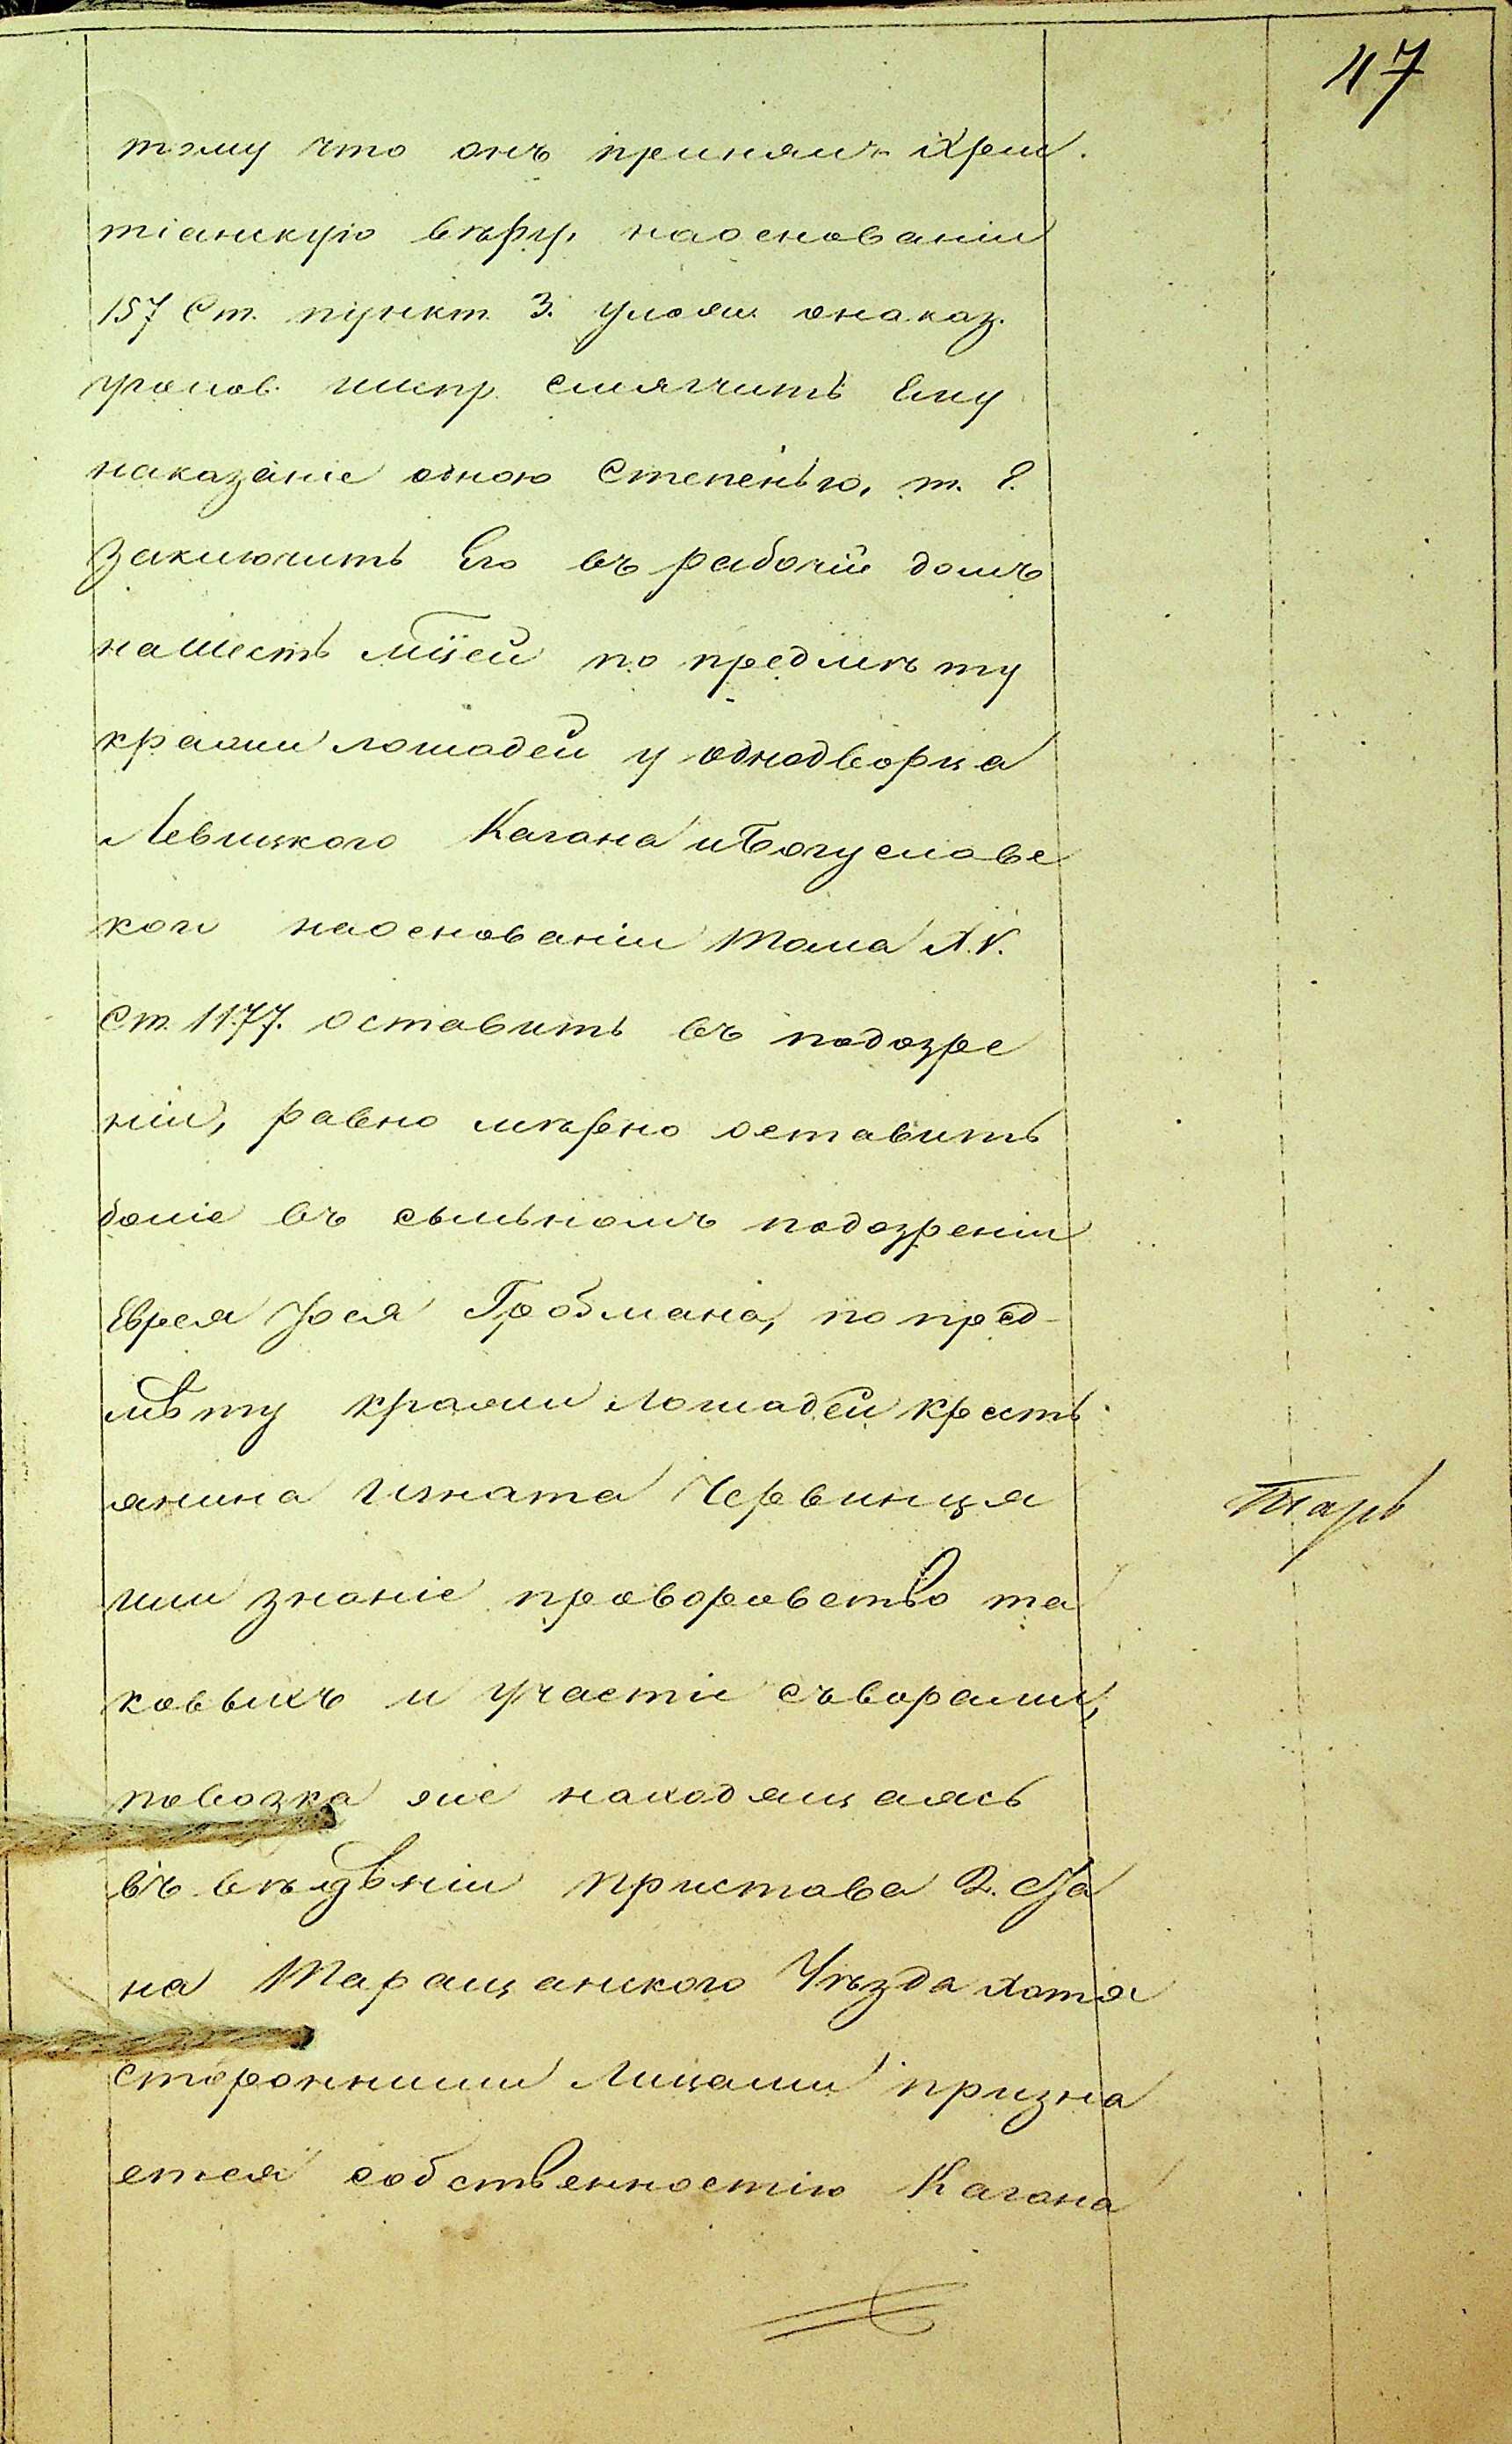 47
тому что онъ принялъ Хрис
тіанскую вѣру, наоснованіи
157 Ст. пункт. 3. улож. онаказ.
уголов. ииспр. смягчить Ему
наказаніе одною Степенью, т. е.
заключить Его въ рабочій домъ
нашесть мцей по предмѣту
кражи лошадей у однодворца
Левицкого Кагана иБогуславс
кой наоснованіи тома XV.
Ст. 1177. оставить въ подозре
ніи, равно мѣрно оставить
боліе въ сыльномъ подозреніи
Еврея Іося Гробмана, по пред-
мѣту кражи лошадей кресть
янина Игната Червинця
или знаніе проворовство та
ковыхъ и участіе съворами,
повозка же находящаясь
въ вѣдѣніи Пристава 2. Ста
на Таращанского Уѣзда хотя
сторонними Лицами призна
ется собственностію Кагана